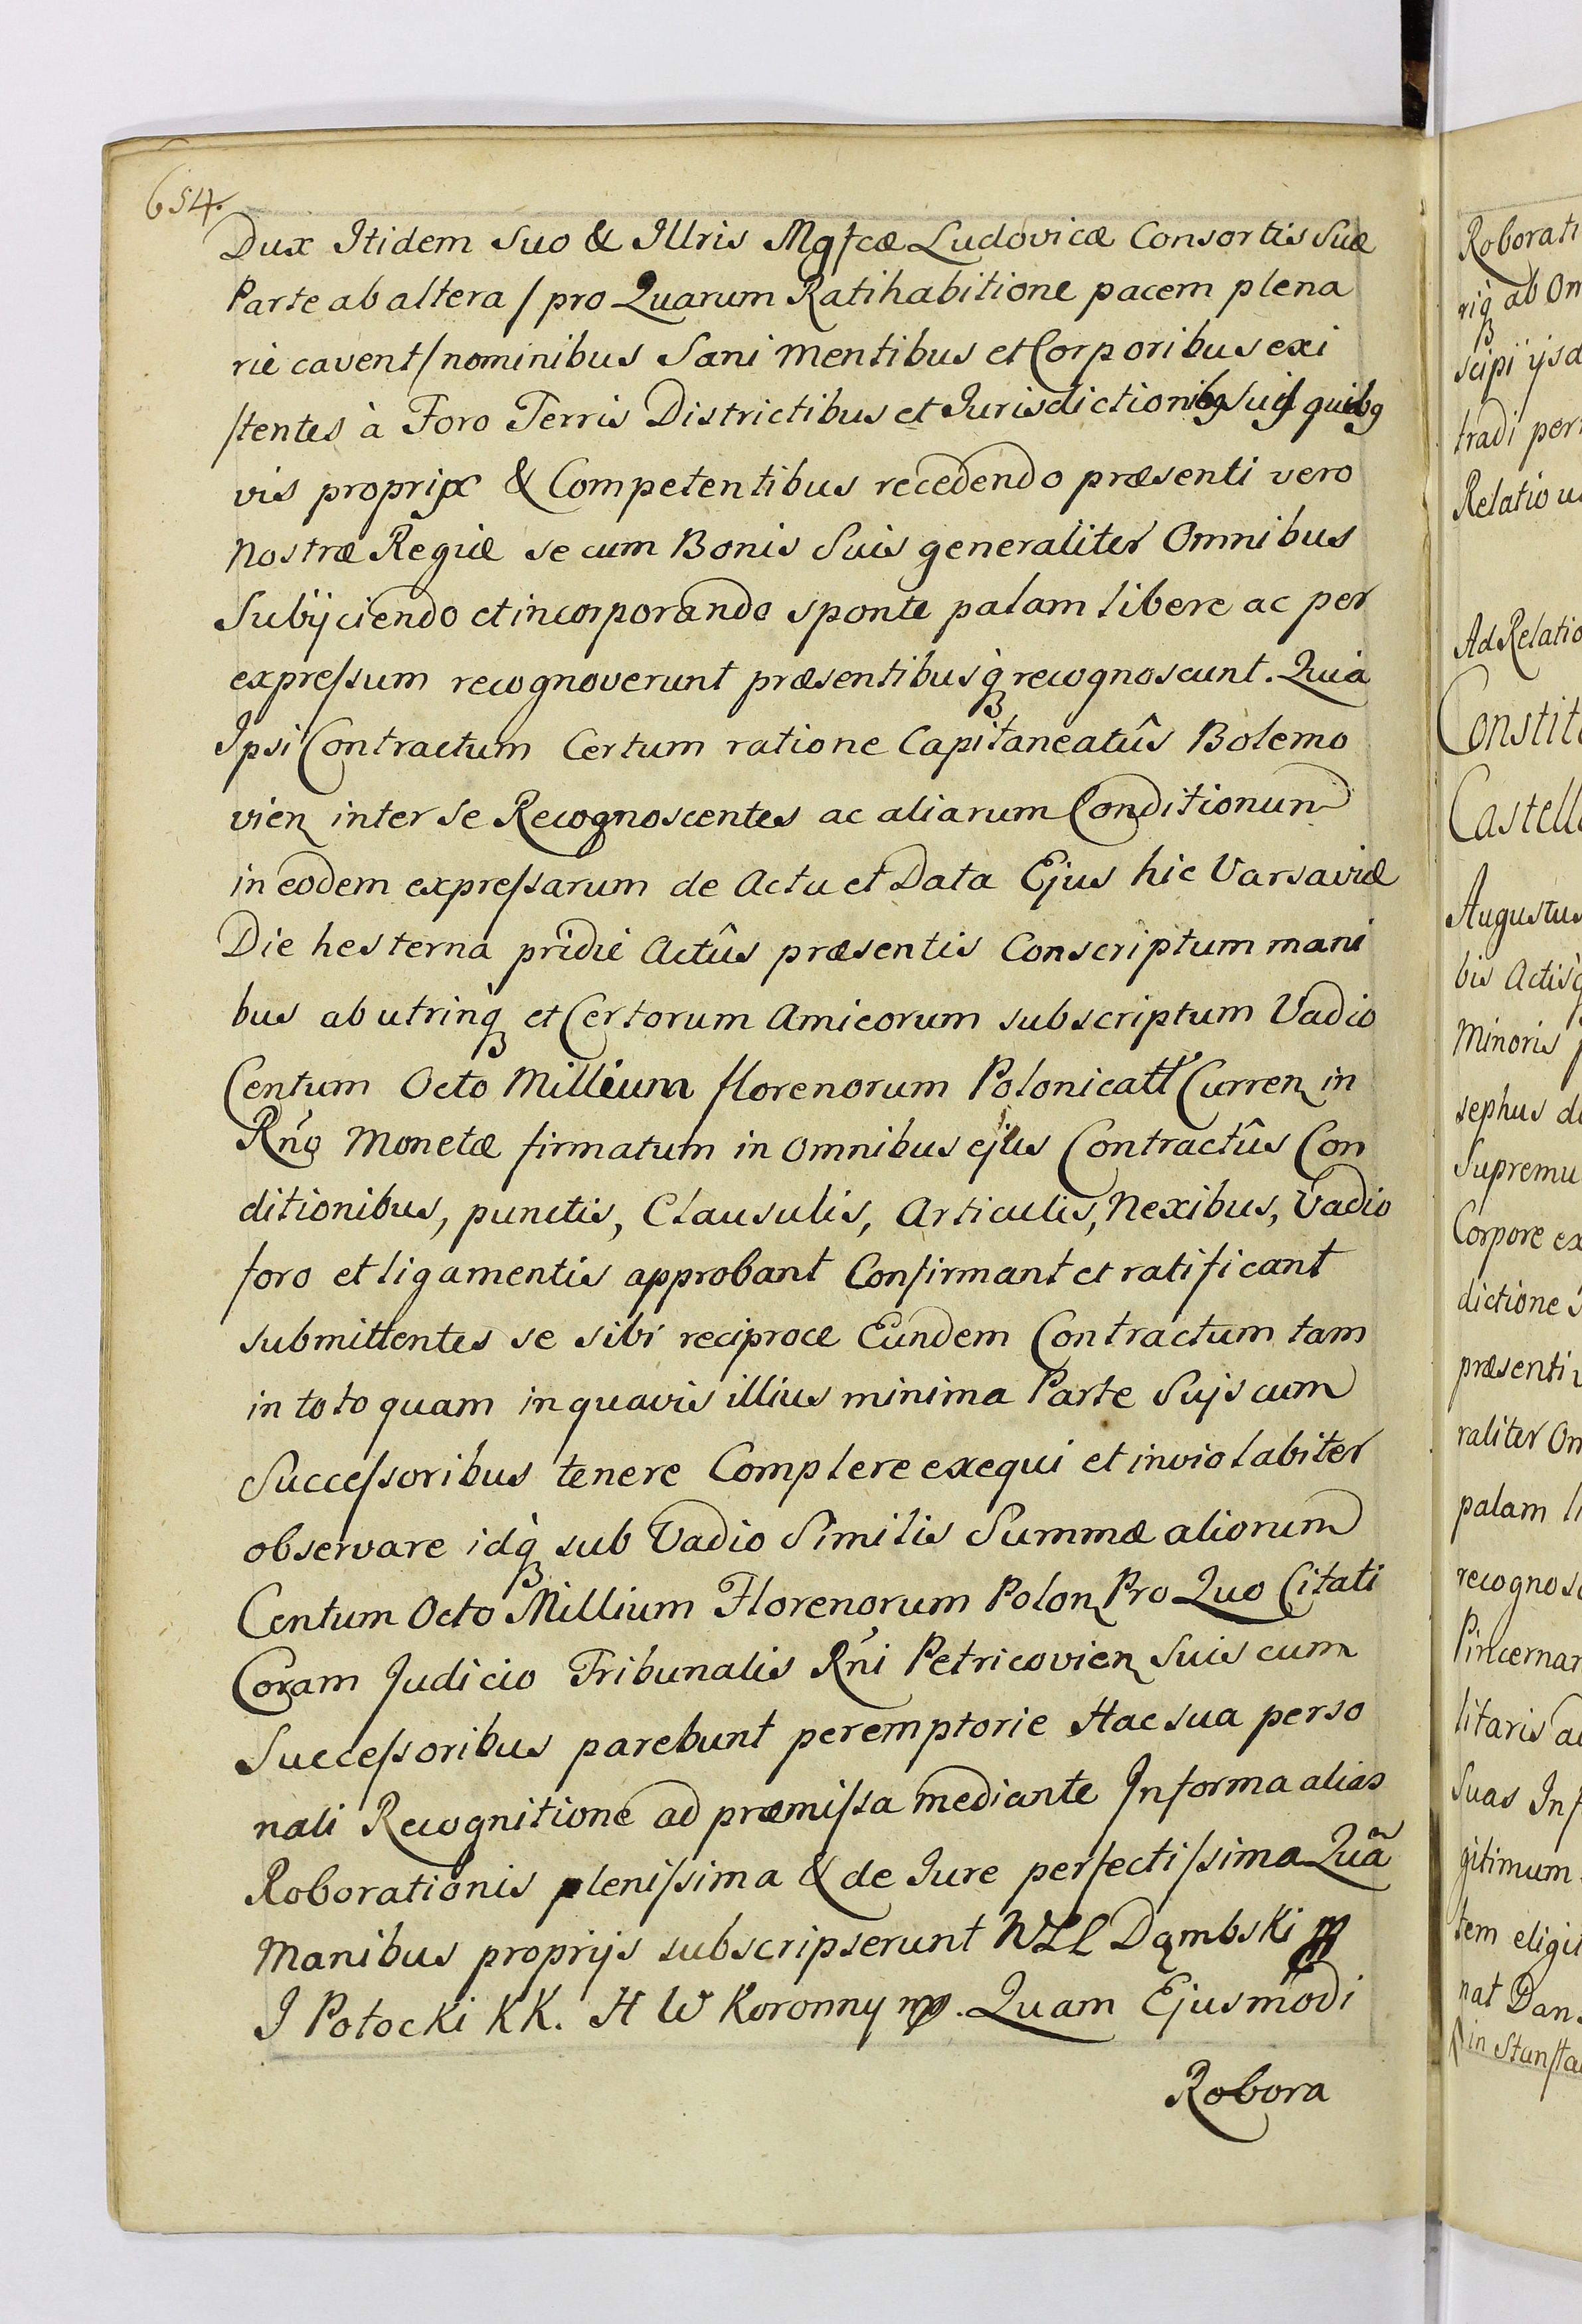 654.
Dux Itidem Suo & Illris Mgfcæ Ludovicæ Consortis Suæ
Parte ab altera / pro Quarum Ratihabitione pacem plena
rie cavent / nominibus Sani mentibus et Corporibus exi
stentes à Foro Terris Districtibus et Jurisdictionibg Suis quibg
vis proprijs & Competentibus recedendo præsenti vero
Nostræ Regiæ se cum Bonis Suis generaliter Omnibus
Subijciendo et incorporando sponte palam libere ac per
expressum recognoverunt præsentibusq̀ recognoscunt. Quia
Ipsi Contractum Certum ratione Capitaneatûs Bolemo
vien inter se Recognoscentes ac aliarum Conditionum
in eodem expressarum de Actu et Data Ejus hic Varsaviæ
Die hesterna pridie Actûs præsentis Conscriptum mani
bus ab utrinq̀ et Certorum Amicorum subscriptum Vadio
Centum Octo Millium florenorum Polonicall Curren in
Rño Monetæ firmatum in omnibus ejus Contractûs Con
ditionibus, punctis, Clausulis, Articulis, Nexibus, Vadio
foro et ligamentis approbant Confirmant et ratificant
submittentes se sibi reciproce Eundem Contractum tam
in toto quam in quavis illius minima Parte Suis cum
Successoribus tenere Complere exequi et inviolabiter
observare idq̀ sub Vadio Similis Summæ aliorum
Centum Octo Millium Florenorum Polon Pro Quo Citati
Coram Judicio Tribunalis Rñi Petricovien Suis cum
Successoribus parebunt peremptorie Hac sua perso
nali Recognitione ad præmissa mediante In forma alias
Roborationis plenissima & de Jure perfectissima Quã
Manibus proprijs subscripserunt WLL Dąmbski mp
J Potocki KK. H W Koronny mp. Quam Ejusmodi
Robora
Roborati
riq̀ ab Om
scipi ijsd
tradi per
Relatio
Ad Relatio
Constit
Castell
Augustus
bis Actisq
Minoris
sephus d
Supremu
Corpore ex
dictione S
præsenti
raliter Om
palam li
recognos
Pincernar
litaris a
Suas Inf
gitimum
tem eligi
nat Dan
in Stansta